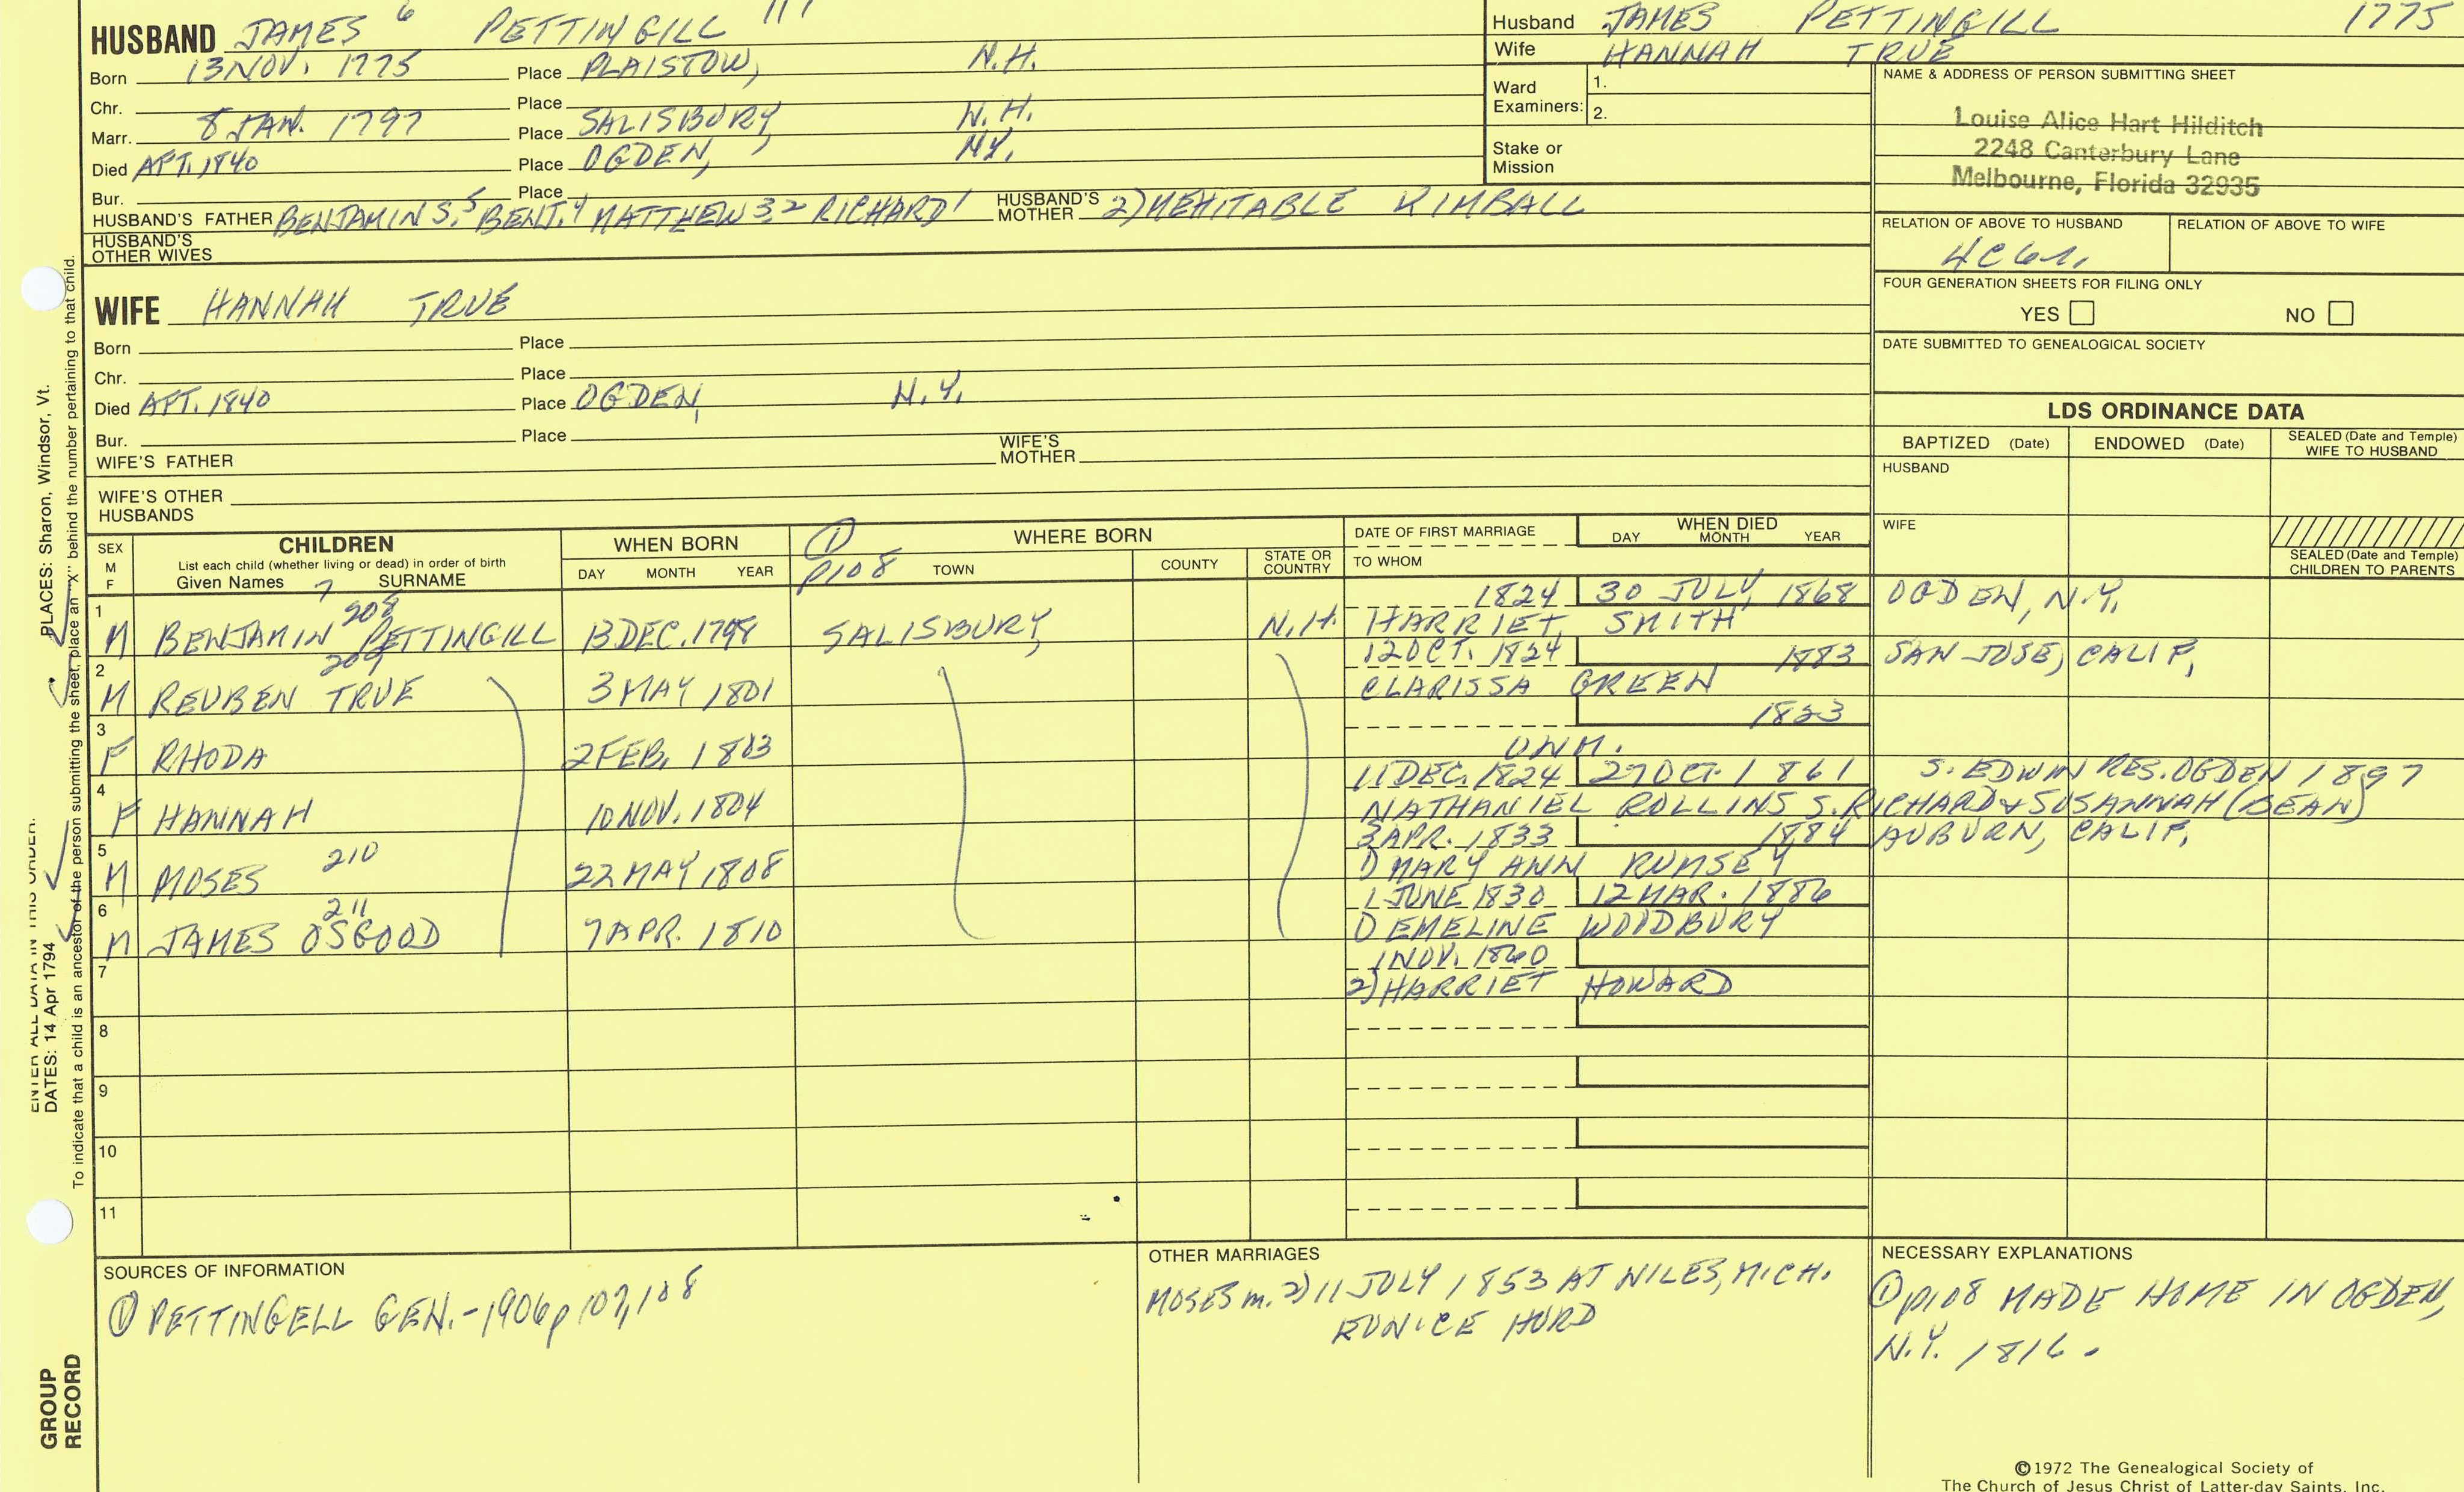 HUSBAND JAMES 6 PETTINGILL 111
Born 13 NOV. 1775 Place PLAISTOW, N.H.
Chr. Place
Marr. 8 JAN. 1797 Place SALISBURY, N.H.
Died AFT. 1840 Place OGDEN, NY.
Bur. Place
HUSBAND'S FATHER BENJAMIN S.5 BENJ.4 MATTHEW 3,2 RICHARD 1 HUSBAND'S MOTHER 2) MEHITABLE KIMBALL
HUSBAND'S OTHER WIVES
WIFE HANNAH TRUE
Born Place
Chr. Place
Died AFT. 1840 Place OGDEN, N.Y.
Bur. Place
WIFE'S FATHER WIFE'S MOTHER
WIFE'S OTHER HUSBANDS
Husband JAMES PETTINGILL 1775
Wife HANNAH TRUE
Ward Examiners: 1.
2.
Stake or Mission
NAME & ADDRESS OF PERSON SUBMITTING SHEET
Louise Alice Hart Hilditch
2248 Canterbury Lane
Melbourne, Florida 32935
RELATION OF ABOVE TO HUSBAND RELATION OF ABOVE TO WIFE
FOUR GENERATION SHEETS FOR FILING ONLY
YES NO
DATE SUBMITTED TO GENEALOGICAL SOCIETY
LDS ORDINANCE DATA
BAPTIZED (Date) ENDOWED (Date) SEALED (Date and Temple) WIFE TO HUSBAND
HUSBAND
WIFE
SEALED (Date and Temple) CHILDREN TO PARENTS
SEX M F
CHILDREN
List each child (whether living or dead) in order of birth
Given Names 7 SURNAME
WHEN BORN
DAY MONTH YEAR
① p108
WHERE BORN
TOWN COUNTY STATE OR COUNTRY
DATE OF FIRST MARRIAGE
TO WHOM
WHEN DIED
DAY MONTH YEAR
1 1824 30 JULY 1868 OGDEN, N.Y.
M BENJAMIN 208 PETTINGILL 13 DEC. 1798 SALISBURY, N.H. HARRIET SMITH
2 209 12 OCT. 1824 1883 SAN JOSE, CALIF.
M REUBEN TRUE 3 MAY 1801 CLARISSA GREEN
3 1823
F RHODA 2 FEB. 1803 UNM.
4 11 DEC. 1824 27 OCT. 1861 S. EDWIN RES. OGDEN 1897
F HANNAH 10 NOV. 1804 NATHANIEL ROLLINS S. RICHARD & SUSANNAH (BEAN)
5 3 APR. 1833 1884 AUBURN, CALIF.
M MOSES 210 22 MAY 1808 1) MARY ANN RUMSEY
6 211 1 JUNE 1830 12 MAR. 1886
M JAMES OSGOOD 7 APR. 1810 1) EMELINE WOODBURY
7 1 NOV. 1860
2) HARRIET HOWARD
8
9
10
11
SOURCES OF INFORMATION
① PETTINGELL GEN. - 1906 p 107, 108
OTHER MARRIAGES
MOSES m. 2) 11 JULY 1853 AT NILES, MICH.
EUNICE HURD
NECESSARY EXPLANATIONS
① p108 MADE HOME IN OGDEN,
N.Y. 1816.
©1972 The Genealogical Society of
The Church of Jesus Christ of Latter-day Saints, Inc.
ENTER ALL DATA IN THIS ORDER:
DATES: 14 Apr 1794 PLACES: Sharon, Windsor, Vt.
To indicate that a child is an ancestor of the person submitting the sheet, place an "X" behind the number pertaining to that child.
GROUP
RECORD